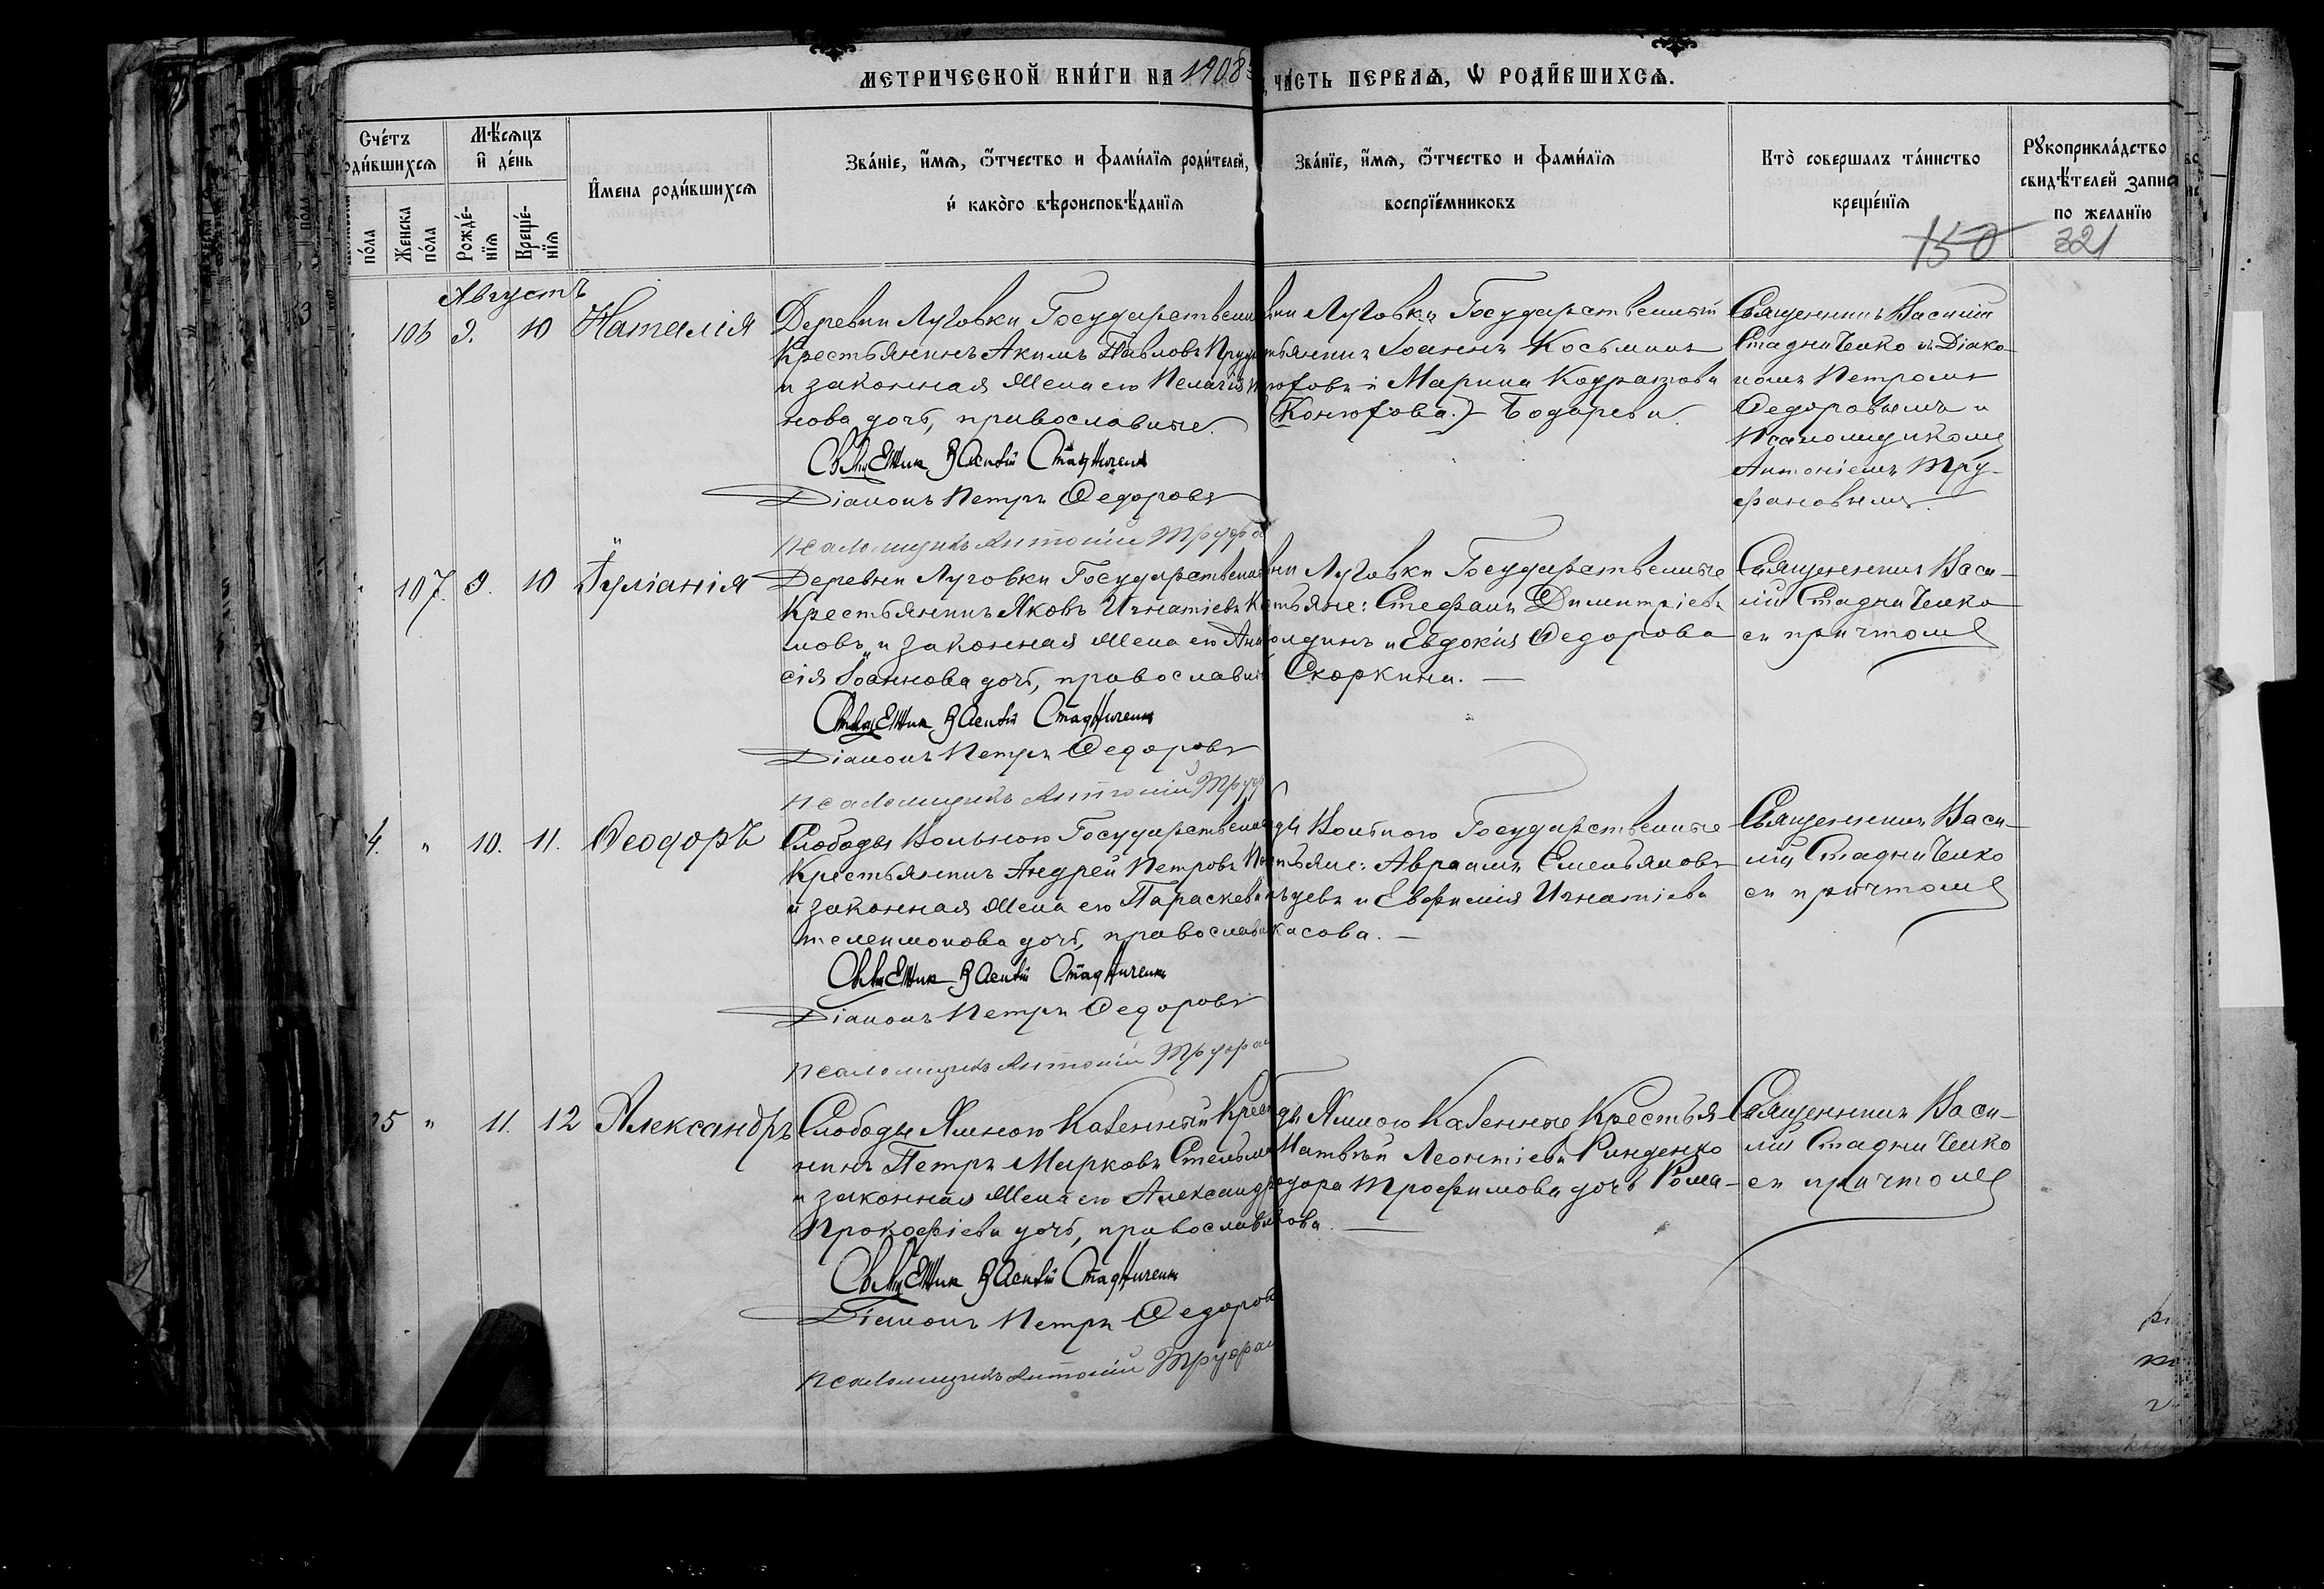 МЕТРИЧЕСКОЙ КНИ́ГИ НА 1908
ЧА́СТЬ ПЕРВАѦ, Ѡ РОДИ́ВШИХСѦ.
Сче́тъ
оди́вшихсѧ
Мѣ́сѧцъ
и҆ де́нь
И҆мена роди́вшихсѧ
Зва́нїе, и҆́мѧ, ѻ҆́тчество и фами́лїѧ роди́телей,
и҆ како́го вѣроисповѣ́данїѧ
Зва́нїе, и҆́мѧ, ѻ҆́тчество и фами́лїѧ
воспрїе́мниковъ
Кто̀ совершалъ та́инство
креще́нїѧ
Рꙋкоприкла́дство
свидѣ́телей запи
по желанїю
по́ла
Женска
по́ла
Рожде́-
нїѧ
Креще́-
нїѧ
150
321
Августъ
106 9. 10 Наталія
Деревни Луговки Государствен
Крестьянинъ Акимъ Павловъ
и законная жена его Пелагія
нова дочь, православные.
Священник Василій Стадниченко
Діаконъ Петръ Федоровъ
Псаломщикъ Антоній Труф
ни Луговки Государственный
тьянинъ Іоаннъ Косьминъ
юховъ и Марина Кодратова
(Конюхова.) Бодарева.
Священникъ Василій
Стадниченко съ Діако-
номъ Петромъ
Федоровымъ и
Псаломщикомъ
Антоніемъ Тру-
фановымъ.
107. 9. 10 Іуліанія
Деревни Луговки Государствен
Крестьянинъ Яковъ Игнатіевъ
мовъ и законная жена его
сія Іоаннова дочь, православн
Священник Василій Стадниченко
Діаконъ Петръ Федоровъ
Псаломщикъ Антоній Труф
ни Луговки Государственные
тьяне: Стефанъ Димитріевъ
олдинъ и Евдокія Федорова
Скоркина. —
Священникъ Васи-
лій Стадниченко
съ причтомъ
4. " 10. 11. Ѳеодоръ
Слободы Вольного Государствен
Крестьянинъ Андрей Петровъ
и законная жена его Параскева
телеимонова дочь, православн
Священник Василій Стадниченко
Діаконъ Петръ Федоровъ
Псаломщикъ Антоній Труфан
ды Вольного Государственные
тьяне: Авраамъ Емельяновъ
ьцевъ и Евфимія Игнатіева
касова. —
Священникъ Васи-
лій Стадниченко
съ причтомъ
5 " 11. 12 Александръ
Слободы Ямного Казенный Крест
нинъ Петръ Марковъ Стельма
и законная жена его Александр
Прокофіева дочь, православн
Священник Василій Стадниченко
Діаконъ Петръ Федоров
Псаломщикъ Антоній Труфан
ды Ямного Казенные Крестья-
Матвѣй Леонтіевъ Ринденко
одора Трофимова дочь Рома-
нова. —
Священникъ Васи-
лій Стадниченко
съ причтомъ